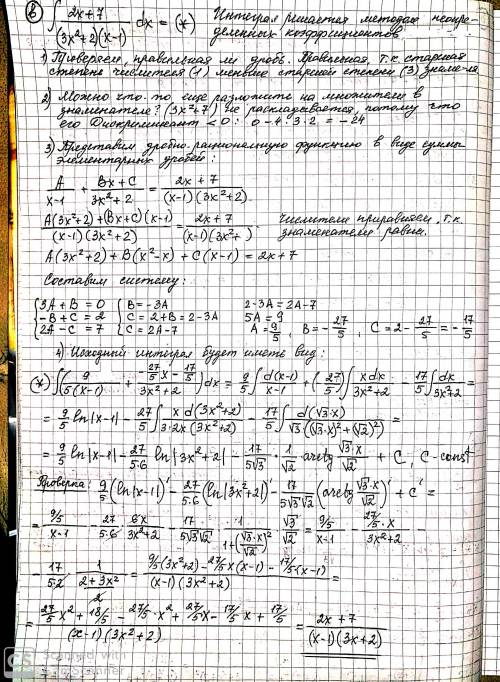 в) ∫ (2x+7)/((3x²+2)(x-1)) dx = (*) Интеграл решается методом неопре-
деленных коэффициентов
1) Проверяем, правильная ли дробь. Правильная, т.к. старшая
степень числителя (1) меньше старшей степени (3) знаме-ля.
2) Можно что-то еще разложить на множители в
знаменателе? (3x²+7) не раскладывается, потому что
его Дискриминант < 0: 0-4·3·2 = -24
3) Представим дробно-рациональную функцию в виде суммы
элементарных дробей:
A/(x-1) + (Bx+C)/(3x²+2) = (2x+7)/((x-1)(3x²+2))
(A(3x²+2)+(Bx+C)(x-1))/((x-1)(3x²+2)) = (2x+7)/((x-1)(3x²+ ) числители приравняем, т.к.
знаменатели равны.
A(3x²+2)+B(x²-x)+C(x-1) = 2x+7
Составим систему:
{3A+B=0 {B=-3A 2-3A=2A-7
{-B+C=2 {C=2+B=2-3A 5A=9
{2A-C=7 {C=2A-7 A=9/5, B=-27/5, C=2-27/5=-17/5
4) Исходный интеграл будет иметь вид:
(*) ∫(9/(5(x-1)) + (-27/5 x - 17/5)/(3x²+2))dx = 9/5 ∫ d(x-1)/(x-1) + (-27/5) ∫ xdx/(3x²+2) - 17/5 ∫ dx/(3x²+2) =
= 9/5 ln|x-1| - 27/5 ∫ x d(3x²+2)/(3·2x(3x²+2)) - 17/5 ∫ d(√3·x)/(√3·((√3·x)²+(√2)²)) =
= 9/5 ln|x-1| - 27/(5·6) ln|3x²+2| - 17/(5√3) · 1/√2 arctg (√3·x)/√2 + C, C-const
Проверка: 9/5 (ln|x-1|)' - 27/(5·6) (ln|3x²+2|)' - 17/(5√3√2) (arctg (√3·x)/√2)' + C' =
= (9/5)/(x-1) - 27/(5·6) · 6x/(3x²+2) - 17/(5√3√2) · 1/(1+((√3·x)/√2)²) · √3/√2 = (9/5)/(x-1) - (27/5·x)/(3x²+2) -
- 17/(5·2) · 1/((2+3x²)/2) = (9/5(3x²+2)-27/5x(x-1)-17/5(x-1))/((x-1)(3x²+2)) =
= (27/5x²+18/5-27/5x²+27/5x-17/5x+17/5)/((x-1)(3x²+2)) = (2x+7)/((x-1)(3x+2))
CS Scanned with
CamScanner